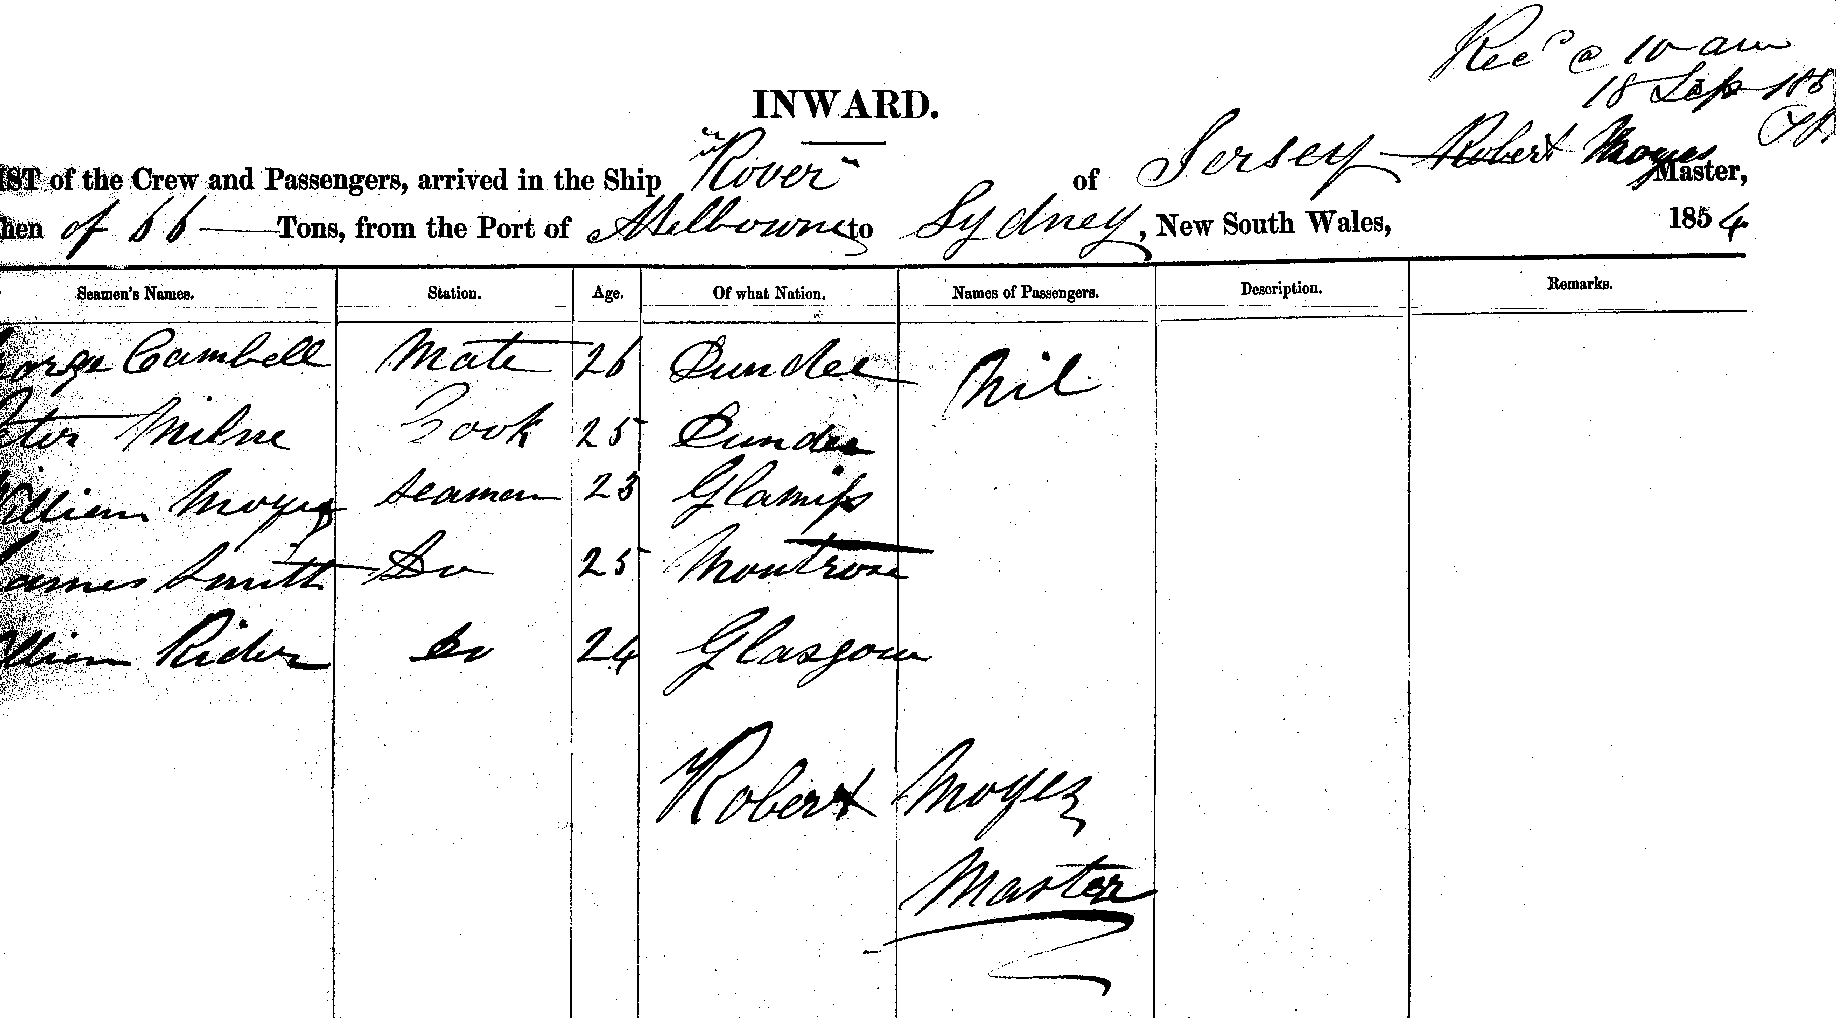 Rec^d @ 10 am
18 Sep 185
INWARD.
IST of the Crew and Passengers, arrived in the Ship "Rover" of Jersey Robert Moyes Master,
hen of 66 Tons, from the Port of Melbourne to Sydney, New South Wales, 1854
Seamen's Names. Station. Age. Of what Nation. Names of Passengers. Description. Remarks.
orge Cambell Mate 26 Dundee Nil
eter Milne Cook 25 Dundee
William Moyes seaman 23 Glamiss
James Smith Do 25 Montrose
lliam Rider Do 24 Glasgow
Robert Moyes
Master